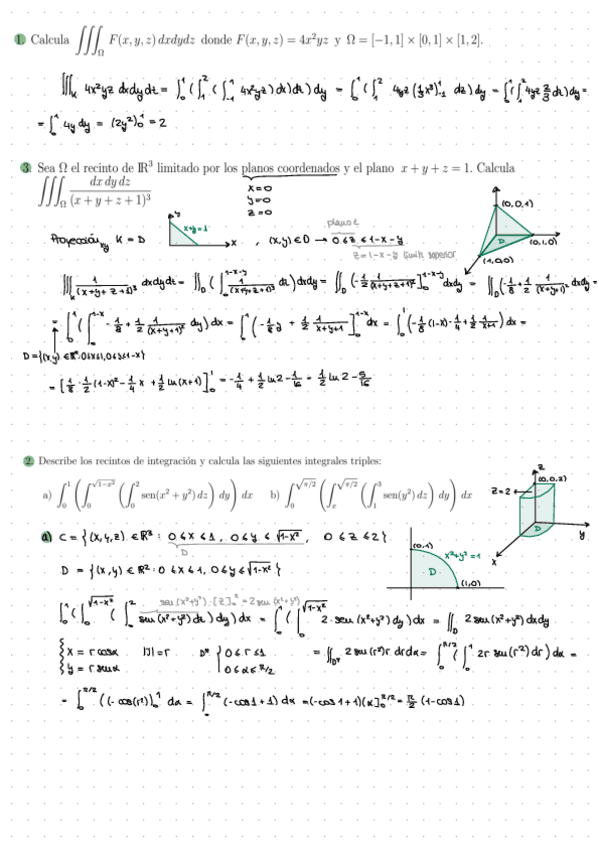 1. Calcula ∭_Ω F(x, y, z) dxdydz donde F(x, y, z) = 4x²yz y Ω = [−1, 1] × [0, 1] × [1, 2].
∭_K 4x²yz dxdydz = ∫₀¹(∫₁²(∫₋₁¹ 4x²yz)dx)dz)dy = ∫₀¹(∫₁² 4yz(⅓x³)₋₁¹ dz)dy = ∫₀¹(∫₁² 4yz ⅔ dz)dy =
= ∫₀¹ 4y dy = (2y²)₀¹ = 2
3. Sea Ω el recinto de ℝ³ limitado por los planos coordenados y el plano x + y + z = 1. Calcula
∭_Ω dx dy dz / (x + y + z + 1)³
x=0
y=0
z=0
(0,0,1)
(0,1,0)
(1,0,0)
D
Proyección xy K = D
y
x+y=1
x
, (x,y) ∈ D → 0 ≤ z ≤ 1-x-y
z = 1-x-y límite superior
∭ 1/(x+y+z+1)³ dxdydz = ∬_D (∫₀^(1-x-y) 1/(x+y+z+1)³ dz) dxdy = ∬_D (-½ 1/(x+y+z+1)²]₀^(1-x-y) dxdy = ∬_D(-⅛ + ½ 1/(x+y+1)² dxdy
= ∫₀¹(∫₀^(1-x) -⅛ + ½ 1/(x+y+1)² dy) dx = ∫₀¹(-⅛y + ½ 1/(x+y+1)]₀^(1-x) dx = ∫₀¹(-⅛(1-x) - ¼ + ½ 1/(x+1)) dx =
D = {(x,y) ∈ ℝ²: 0≤x≤1, 0≤y≤1-x}
= [⅛ · ½(1-x)² - ¼ x + ½ ln(x+1)]₀¹ = -¼ + ½ ln2 - 1/16 = ½ ln2 - 5/16
2. Describe los recintos de integración y calcula las siguientes integrales triples:
a) ∫₀¹ (∫₀^√(1−x²) (∫₀² sen(x² + y²) dz) dy) dx b) ∫₀^√(π/2) (∫ₓ^√(π/2) (∫₁³ sen(y²) dz) dy) dx
z
(0,0,2)
z=2
D
y
x
a) C = {(x,y,z) ∈ ℝ³ : 0 ≤ x ≤ 1, 0 ≤ y ≤ √(1-x²), 0 ≤ z ≤ 2}
D
(0,1)
x²+y²=1
D
(1,0)
D = {(x,y) ∈ ℝ²: 0 ≤ x ≤ 1, 0 ≤ y ≤ √(1-x²)}
sen(x²+y²)·[z]₀² = 2sen(x²+y²)
∫₀¹(∫₀^√(1-x²)(∫₀² sen(x²+y²) dz) dy) dx = ∫₀¹(∫₀^√(1-x²) 2·sen(x²+y²) dy) dx = ∬_D 2sen(x²+y²) dxdy
{x = r cosα |J| = r D* {0 ≤ r ≤ 1 = ∬_D* 2sen(r²)r drdα = ∫₀^(π/2)(∫₀¹ 2r sen(r²) dr) dα =
{y = r senα 0 ≤ α ≤ π/2
= ∫₀^(π/2) ((-cos(r²))₀¹ dα = ∫₀^(π/2) (-cos1+1) dα = (-cos1+1)(α]₀^(π/2) = π/2 (1-cos1)